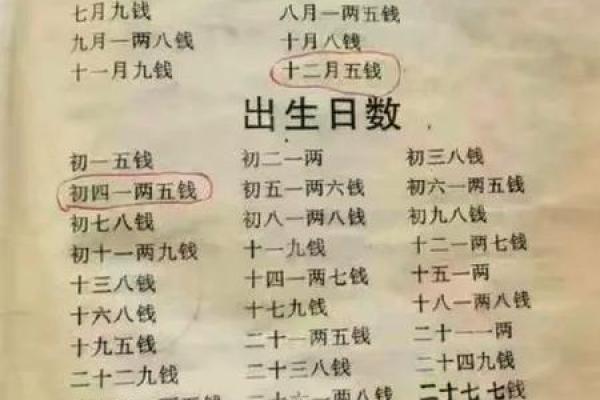 七月九钱 八月一两五钱
九月一两八钱 十月八钱
十一月九钱 十二月五钱
出生日数
初一五钱 初二一两 初三八钱
初四一两五钱 初五一两六钱 初六一两五钱
初七八钱 初八一两八钱 初九八钱
初十一两九钱 十一九钱 十二一两七钱
十三八钱 十四一两七钱 十五一两
十六八钱 十七九钱 十八一两八钱
十九五钱 二十一两五钱 二十一一两
二十二九钱 二十三八钱 二十四九钱
二十六一两八钱 二十七七钱